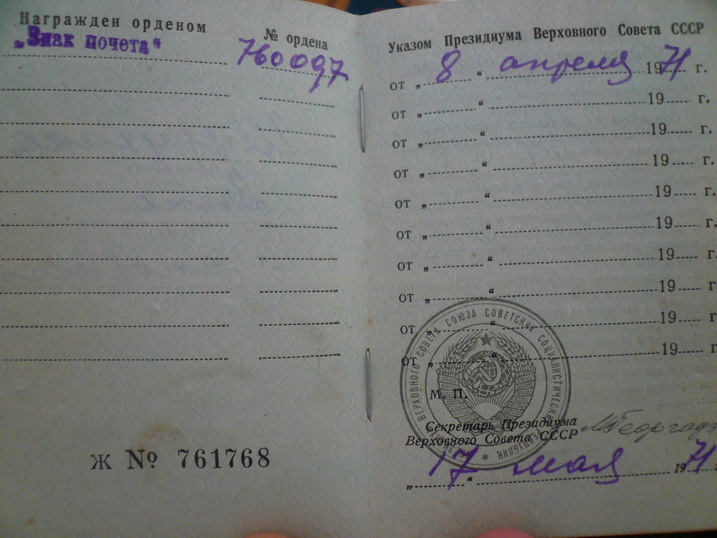 Награжден орденом
№ ордена
„Знак почета“
760097
Ж № 761768
Указом Президиума Верховного Совета СССР
от „ 8 “ апреля 1971 г.
от „ “ 19 г.
от „ “ 19 г.
от „ “ 19 г.
от „ “ 19 г.
от „ “ 19 г.
от „ “ 19 г.
от „ “ 19 г.
от „ “ 19 г.
от „ “ 19 г.
ВЕРХОВНОГО СОВЕТА СОЮЗА СОВЕТСКИХ СОЦИАЛИСТИЧЕСКИХ
М. П.
Секретарь Президиума
Верховного Совета СССР
М Георгадз
„ 17 “ мая 1971 г.